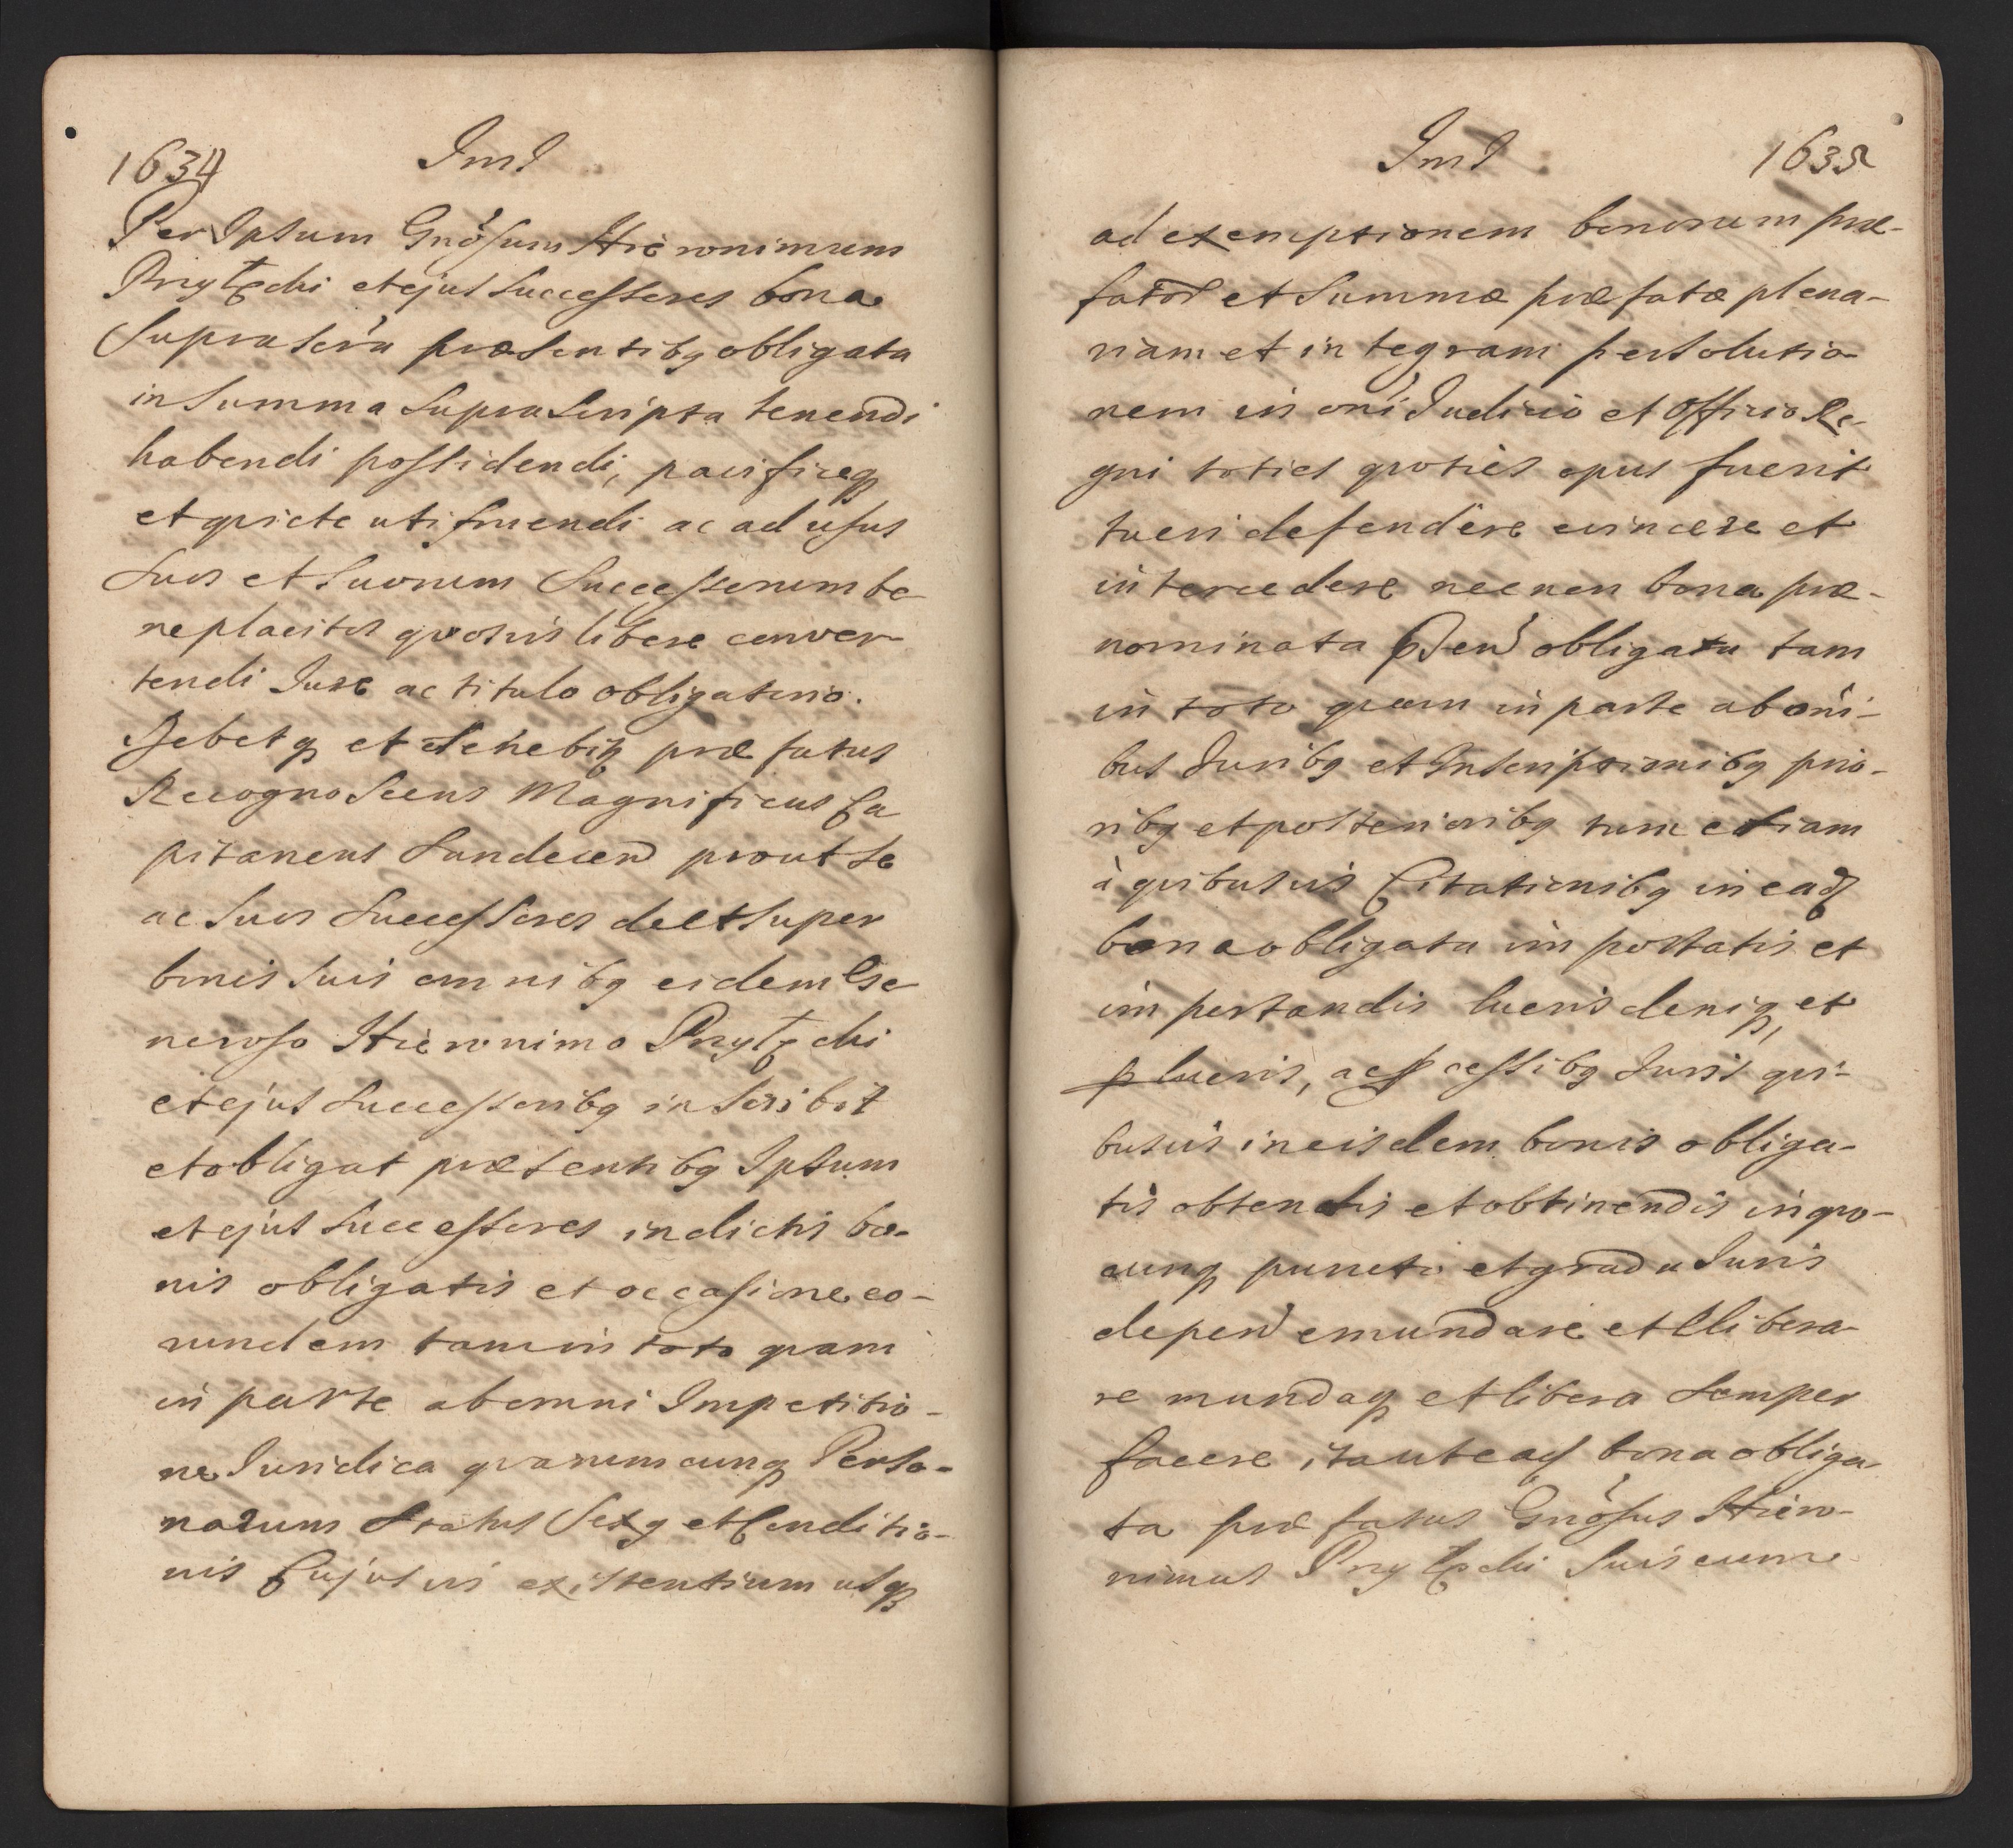 1634
Jms
Per Ipsum Gnosum Hieronimum
Przyłęcki et ejus Successores bona
Suprascra præsentibq obligata
in Summa Suprascripta tenendi
habendi possidendi, pacificeq
et qviete utifruendi ac ad usus
Suos et Suorum Successorum be-
neplacitos qvosvis libere conver-
tendi Jure ac titulo obligatorio.
Debetq et debebit præfatus
Recognoscens Magnificus Ca
pitaneus Sandecen prout se
ac Suos Successores de et super
bonis Suis omnibq eidem Ge-
neroso Hieronimo Przyłęcki
et ejus Successoribq inscribit
et obligat præsentibq Ipsum
et ejus Successores in dictis bo-
nis obligatis et occasione eo-
rundem tam in toto qvam
in parte ab omni Impetitio-
ne Juridica qvarumcunq Perso-
narum Status Sexq et Conditio-
nis Cujusvis existentium usq
Jms
1635
ad exemptionem bonorum præ-
fator et Summæ præfatæ plena-
riam et integram persolutio-
nem in oni Judicio et Officio Re-
gni toties qvoties opus fuerit
tueri defendere evincere et
intercedere nec non bona præ-
nominata obligata tam
in toto qvam in parte ab oni-
bus Juribq et Inscriptionibq prio-
ribq et posterioribq tum etiam
à qvibusvis Citationibq in ead
bona obligata importatis et
importandis lucris deniq et
plucris, ac pcessibq Juris qvi-
busvis in eisdem bonis obliga-
tis obtentis et obtinendis in qvo-
cunq puncto et gradu Juris
depen emundare et libera-
re mundaq et libera Semper
facere ita ut ead bona obliga-
ta præfatus Gnosus Hiero-
nimus Przyłęcki Suis cum